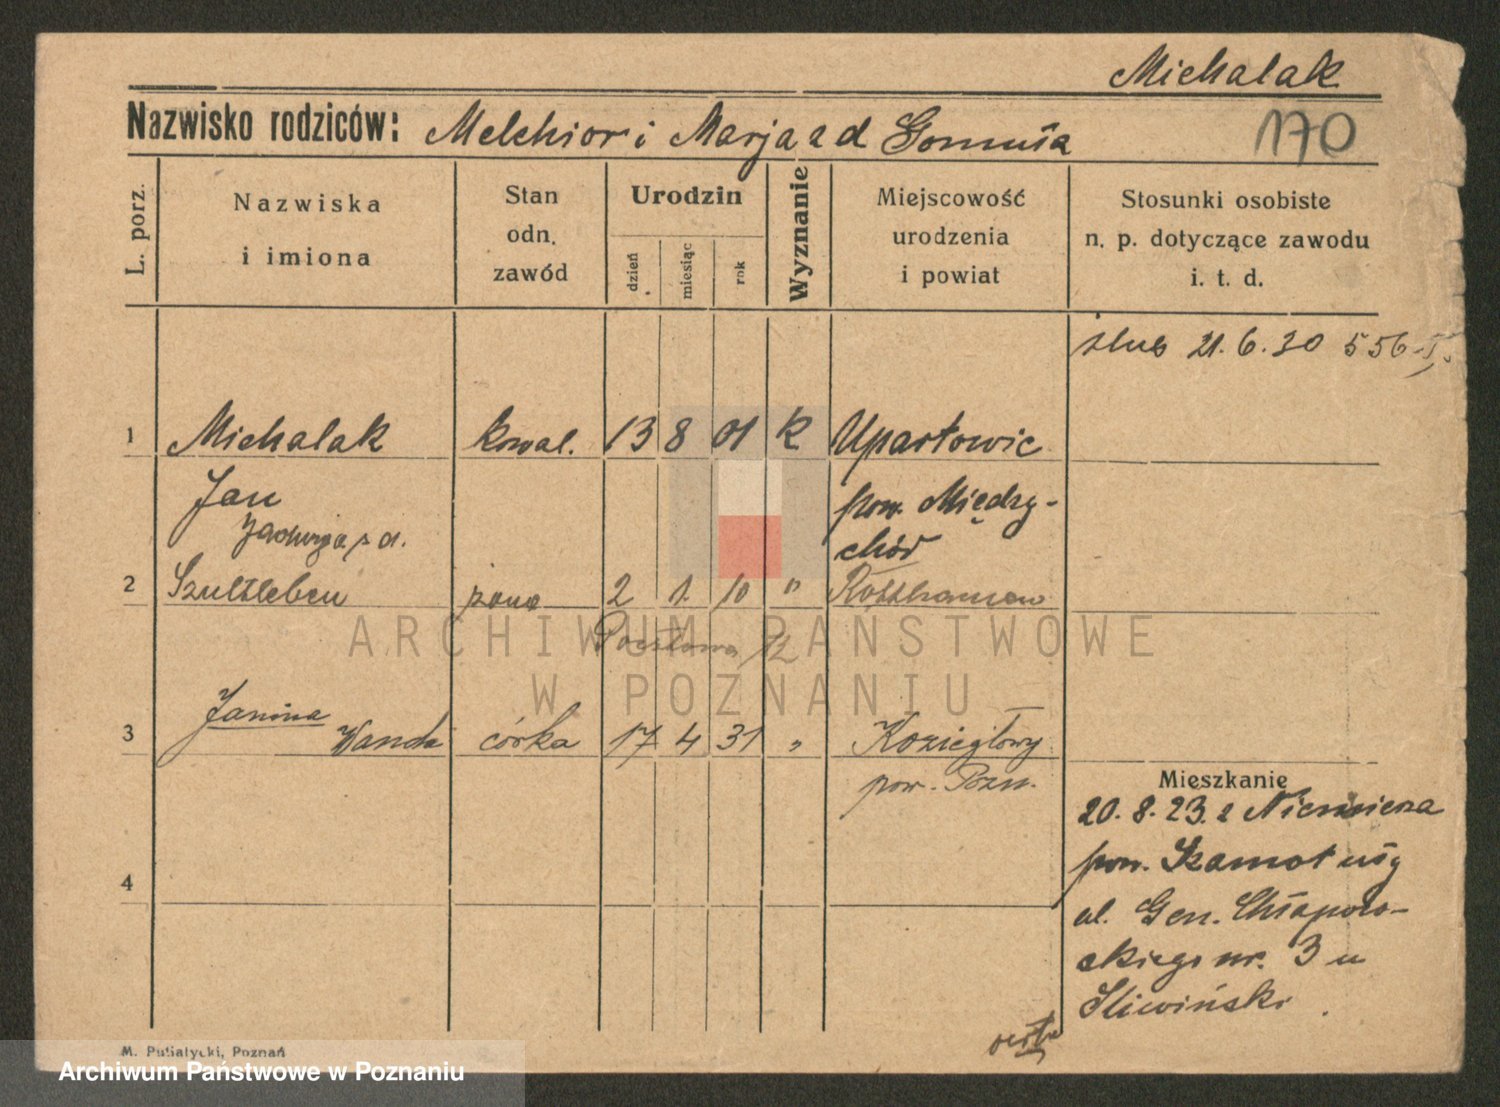 Michalak
Nazwisko rodziców: Melchior i Marja z d Gomuła
170
L. porz.
Nazwiska
i imiona
Stan
odn.
zawód
Urodzin
dzień
miesiąc
rok
Wyznanie
Miejscowość
urodzenia
i powiat
Stosunki osobiste
n. p. dotyczące zawodu
i. t. d.
ślub 21.6.30 556
1 Michalak kowal. 13 8 01 K Upartowic
Jan pow. Między-
Jadwiga z d. chód
2 Szultzleben żona 2 1. 10 "
Pocztowa 12
3 Janina Wanda córka 17 4 31 " Koziegłowy
pow. Pozn.
Mieszkanie
20. 8. 23. z Niemierza
pow. Szamotuły
ul. Gen. Chłapow-
skiego nr. 3 u
Śliwiński
4
M. Putiatycki, Poznań
ARCHIWUM PAŃSTWOWE
W POZNANIU
Archiwum Państwowe w Poznaniu